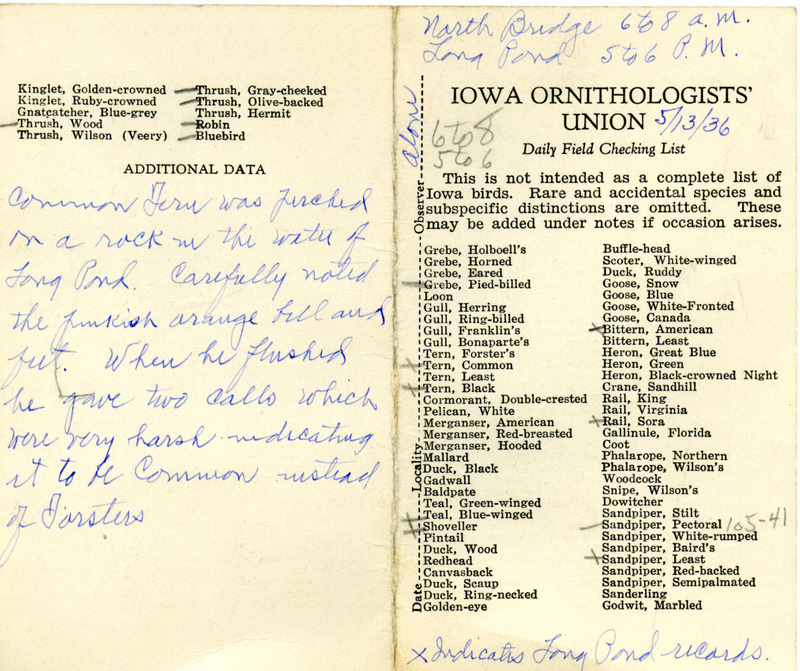 Kinglet, Golden-crowned
Kinglet, Ruby-crowned
Gnatcatcher, Blue-grey
Thrush, Wood
Thrush, Wilson (Veery)
Thrush, Gray-cheeked
Thrush, Olive-backed
Thrush, Hermit
Robin
Bluebird
ADDITIONAL DATA
Common Tern was perched
on a rock in the water of
Long Pond. Carefully noted
the pinkish orange bill and
feet. When he flushed
he gave two calls which
were very harsh indicating
it to be Common instead
of Forsters
North Bridge 6 to 8 a.m.
Long Pond 5 to 6 P.M.
IOWA ORNITHOLOGISTS'
UNION 5/13/36
Daily Field Checking List
6 to 8
5 to 6
This is not intended as a complete list of
Iowa birds. Rare and accidental species and
subspecific distinctions are omitted. These
may be added under notes if occasion arises.
Date Locality Observer alone
Grebe, Holboell's
Grebe, Horned
Grebe, Eared
Grebe, Pied-billed
Loon
Gull, Herring
Gull, Ring-billed
Gull, Franklin's
Gull, Bonaparte's
Tern, Forster's
Tern, Common
Tern, Least
Tern, Black
Cormorant, Double-crested
Pelican, White
Merganser, American
Merganser, Red-breasted
Merganser, Hooded
Mallard
Duck, Black
Gadwall
Baldpate
Teal, Green-winged
Teal, Blue-winged
Shoveller
Pintail
Duck, Wood
Redhead
Canvasback
Duck, Scaup
Duck, Ring-necked
Golden-eye
Buffle-head
Scoter, White-winged
Duck, Ruddy
Goose, Snow
Goose, Blue
Goose, White-Fronted
Goose, Canada
x Bittern, American
Bittern, Least
Heron, Great Blue
Heron, Green
Heron, Black-crowned Night
Crane, Sandhill
Rail, King
Rail, Virginia
x Rail, Sora
Gallinule, Florida
Coot
Phalarope, Northern
Phalarope, Wilson's
Woodcock
Snipe, Wilson's
Dowitcher
Sandpiper, Stilt
Sandpiper, Pectoral 105-41
Sandpiper, White-rumped
Sandpiper, Baird's
x Sandpiper, Least
Sandpiper, Red-backed
Sandpiper, Semipalmated
Sanderling
Godwit, Marbled
x Indicates Long Pond records.